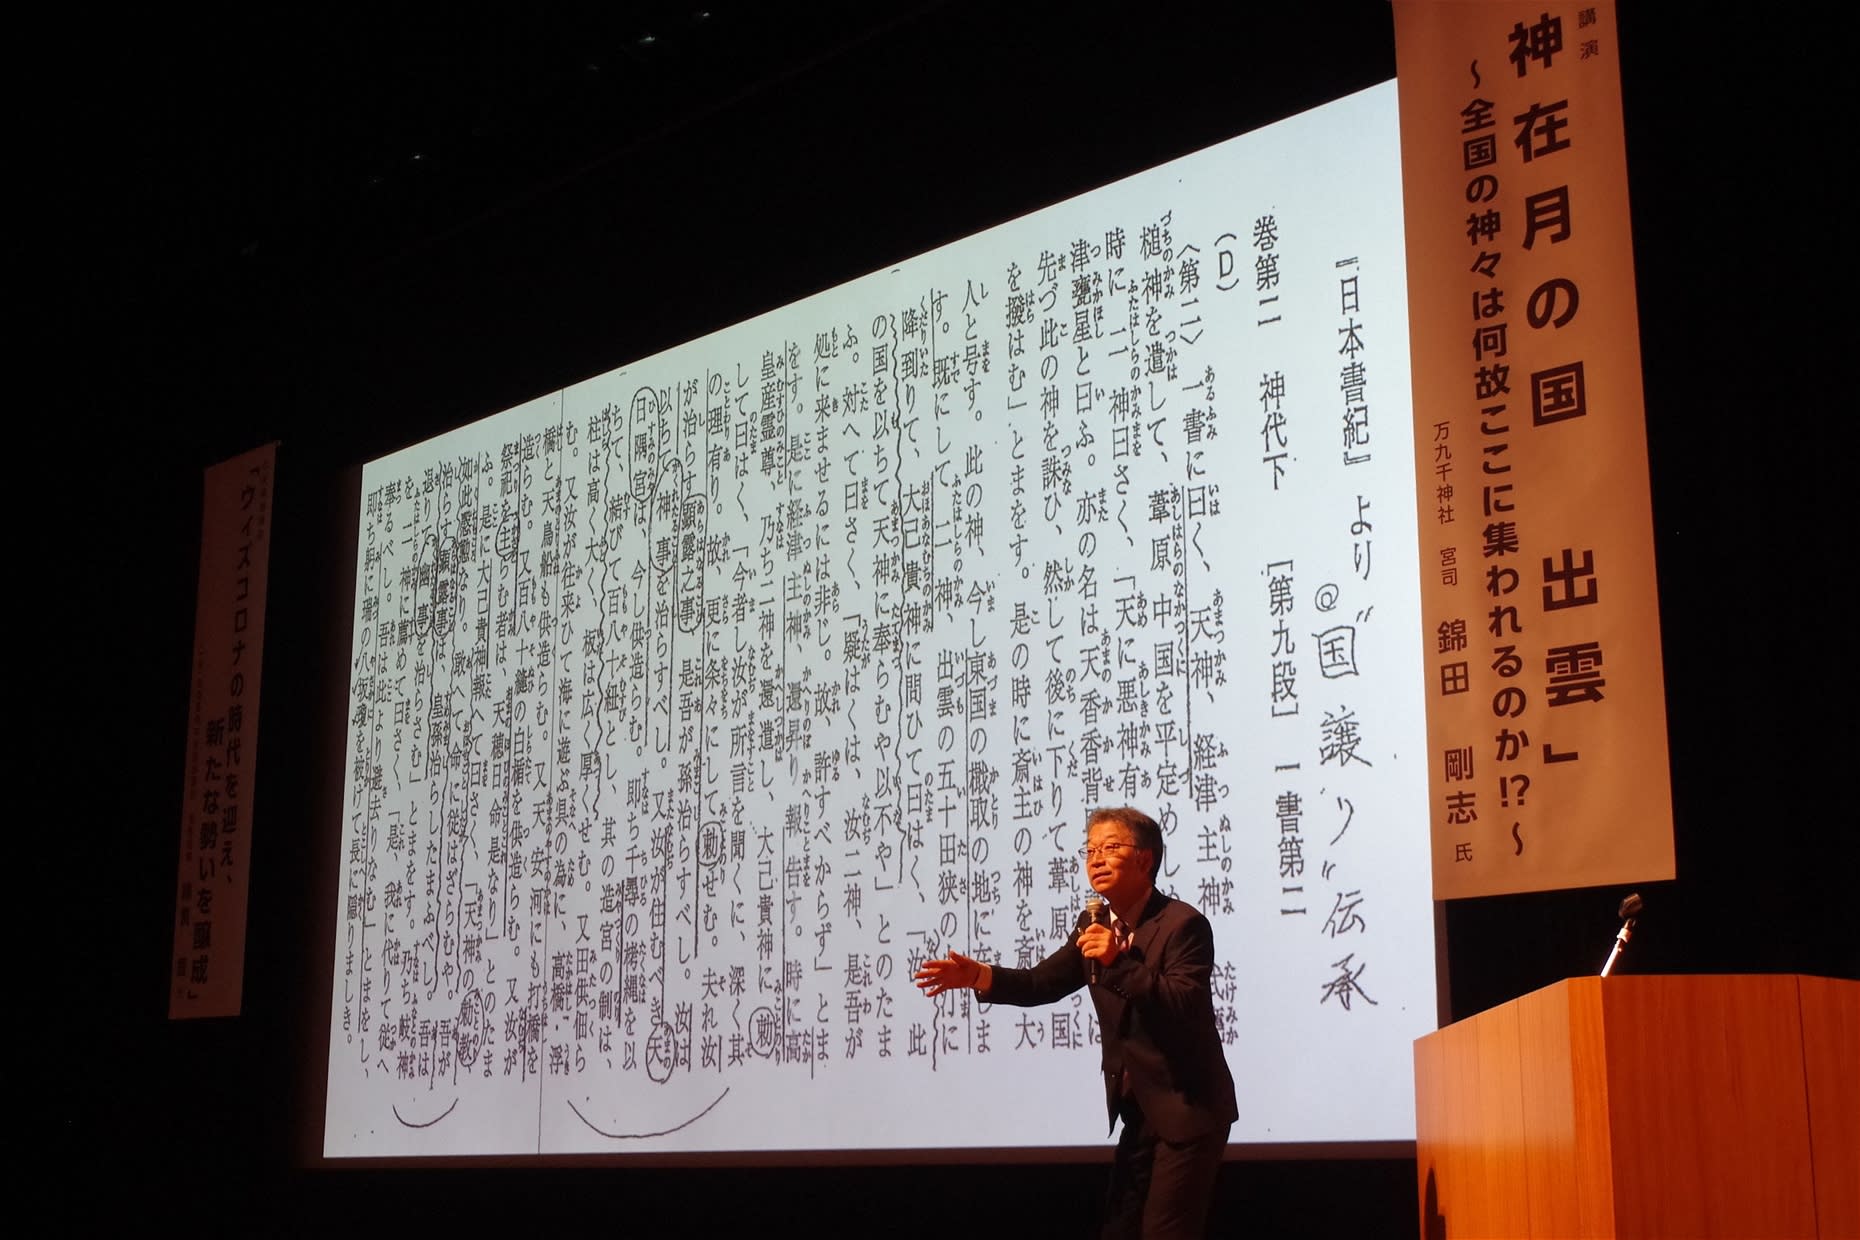 講演
神在月の国 出雲」
〜全国の神々は何故ここに集われるのか!?〜
万九千神社 宮司 錦田 剛志 氏
『日本書紀』より
@〝国譲り〟伝承
巻第二 神代下 [第九段] 一書第二
(D)
〈第二〉一書に曰く、天神、経津主神
槌神を遣して、葦原中国を平定めし
時に二神曰さく、「天に悪神有
津甕星と曰ふ。亦の名は天香香背
先づ此の神を誅ひ、然して後に下りて葦原
を撥はむ」とまをす。是の時に斎主の神を斎
大
人と号す。此の神、今し東国の檝取の地に在
す。既にして二神、出雲の五十田狭の
降到りて、大己貴神に問ひて曰はく、「汝
此
の国を以ちて天神に奉らむや以不や」とのたま
ふ。対へて曰さく、「疑はくは、汝二神、是吾が
処に来ませるには非じ。故、許すべからず」とま
をす。是に経津主神、還昇り報告す。時に高
皇産霊尊、乃ち二神を還遣し、大己貴神に勅
して曰はく、「今者し汝が所言を聞くに、深く其
の理有り。故、更に条々にして勅せむ。夫れ汝
が治らす顕露之事、是吾が孫治らすべし。汝は
以ちて神事を治らすべし。又汝が住むべき天
日隅宮は、今し供造らむ。即ち千尋の栲縄を以
ちて、結びて百八十紐とし、其の造宮の制は、
柱は高く大く、板は広く厚くせむ。又田供佃ら
む。又汝が往来ひて海に遊ぶ具の為に、高橋・浮
橋と天鳥船も供造らむ。又天安河にも打橋を
造らむ。又百八十縫の白楯を供造らむ。又汝が
祭祀を主らむ者は、天穂日命是なり」とのたま
ふ。是に大己貴神報へて曰さく、「天神の勅教、
如此慇懃なり。敢へて命に従はざらむや。吾が
治らす顕露事は、皇孫治らしたまふべし。吾は
退りて幽事を治らさむ」とまをす。乃ち岐神
を二神に薦めて曰さく、「是、我に代りて従へ
奉るべし。吾は此より避去りなむ」とまをし、
即ち躬に瑞の八坂瓊を被けて長に隠りましき。
「ウィズコロナの時代を迎え、
新たな勢いを醸成」